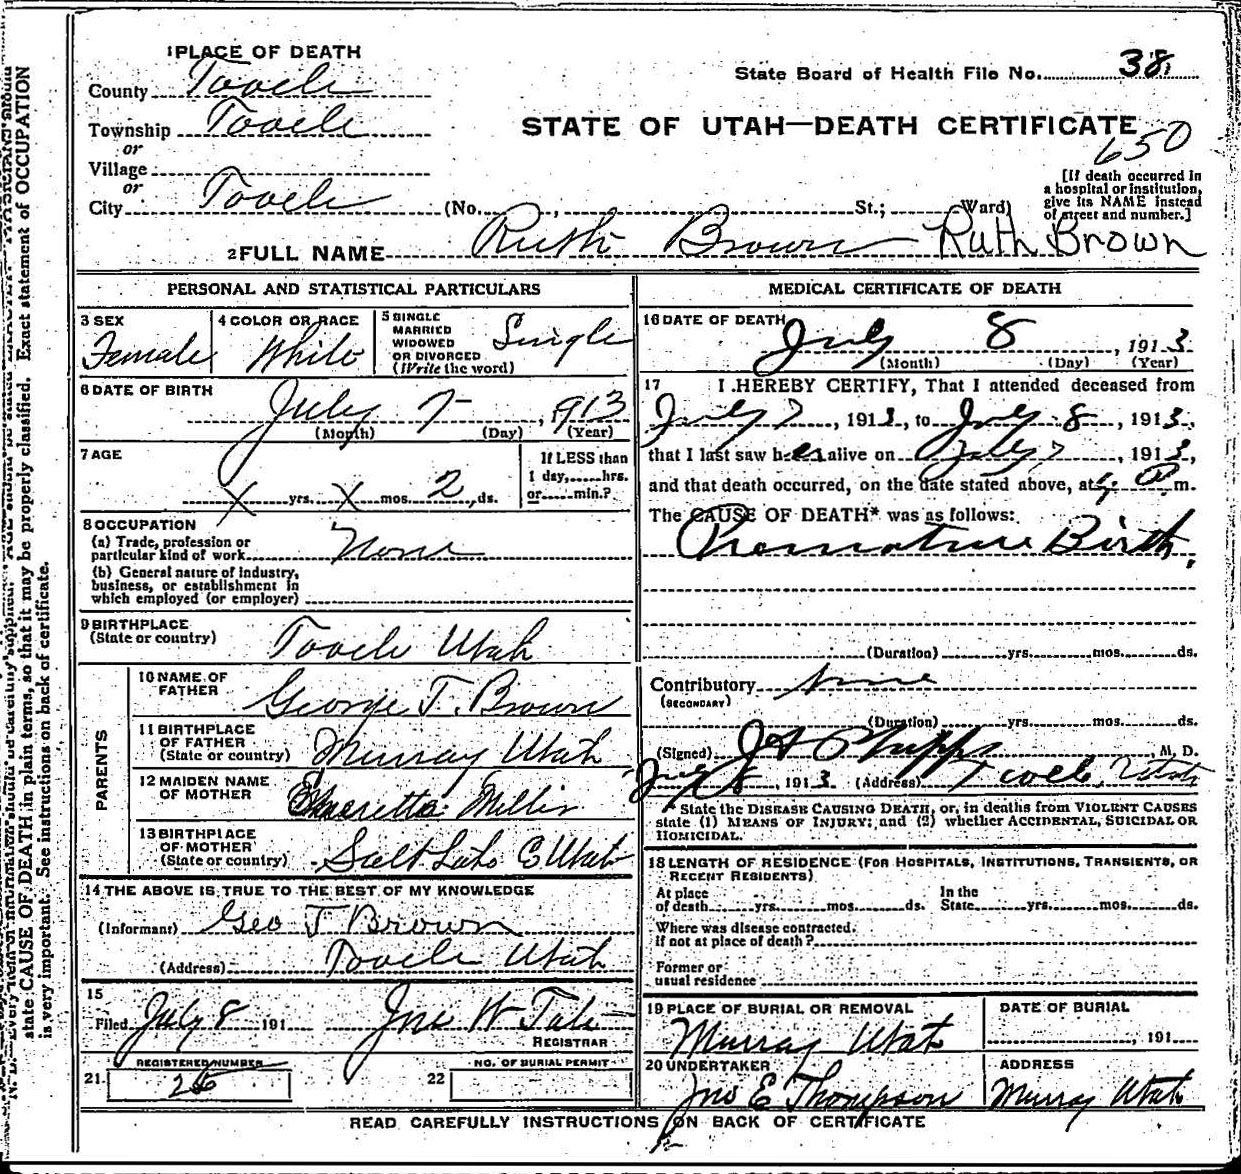 1 PLACE OF DEATH
County Tooele
State Board of Health File No. 38
Township Tooele
or
STATE OF UTAH—DEATH CERTIFICATE
650
Village
or
City Tooele (No. , St.; Ward)
[If death occurred in
a hospital or institution,
give its NAME instead
of street and number.]
2 FULL NAME Ruth Brown Ruth Brown
PERSONAL AND STATISTICAL PARTICULARS
3 SEX
Female
4 COLOR OR RACE
White
5 SINGLE
MARRIED
WIDOWED
OR DIVORCED
(Write the word)
Single
6 DATE OF BIRTH
July 7 , 1913
(Month) (Day) (Year)
7 AGE
X yrs. X mos. 2 ds.
If LESS than
1 day, hrs.
or min.?
8 OCCUPATION
(a) Trade, profession or
particular kind of work None
(b) General nature of industry,
business, or establishment in
which employed (or employer)
9 BIRTHPLACE
(State or country) Tooele Utah
PARENTS
10 NAME OF
FATHER George T. Brown
11 BIRTHPLACE
OF FATHER
(State or country) Murray Utah
12 MAIDEN NAME
OF MOTHER
13 BIRTHPLACE
OF MOTHER
(State or country) Salt Lake C Utah
14 THE ABOVE IS TRUE TO THE BEST OF MY KNOWLEDGE
(Informant) Geo T Brown
(Address) Tooele Utah
15
Filed July 8 191 Jno W Tate
REGISTRAR
REGISTERED NUMBER
21.
NO. OF BURIAL PERMIT
22
MEDICAL CERTIFICATE OF DEATH
16 DATE OF DEATH
July 8 , 1913
(Month) (Day) (Year)
17 I HEREBY CERTIFY, That I attended deceased from
July 7 , 1913, to July 8 , 1913,
that I last saw her alive on July 7 , 1913,
and that death occurred, on the date stated above, at P m.
The CAUSE OF DEATH* was as follows:
Premature Birth
(Duration) yrs. mos. ds.
Contributory None
(SECONDARY)
(Duration) yrs. mos. ds.
(Signed) J A Phipps , M. D.
July 8, 1913 (Address) Tooele, Utah
*State the DISEASE CAUSING DEATH, or, in deaths from VIOLENT CAUSES
state (1) MEANS OF INJURY; and (2) whether ACCIDENTAL, SUICIDAL OR
HOMICIDAL.
18 LENGTH OF RESIDENCE (FOR HOSPITALS, INSTITUTIONS, TRANSIENTS, OR
RECENT RESIDENTS)
At place
of death yrs. mos. ds.
In the
State yrs. mos. ds.
Where was disease contracted.
if not at place of death?
Former or
usual residence
19 PLACE OF BURIAL OR REMOVAL
Murray Utah
DATE OF BURIAL
, 191
20 UNDERTAKER
Jno E Thompson
ADDRESS
Murray Utah
READ CAREFULLY INSTRUCTIONS ON BACK OF CERTIFICATE
state CAUSE OF DEATH in plain terms, so that it may be properly classified. Exact statement of OCCUPATION
is very important. See instructions on back of certificate.